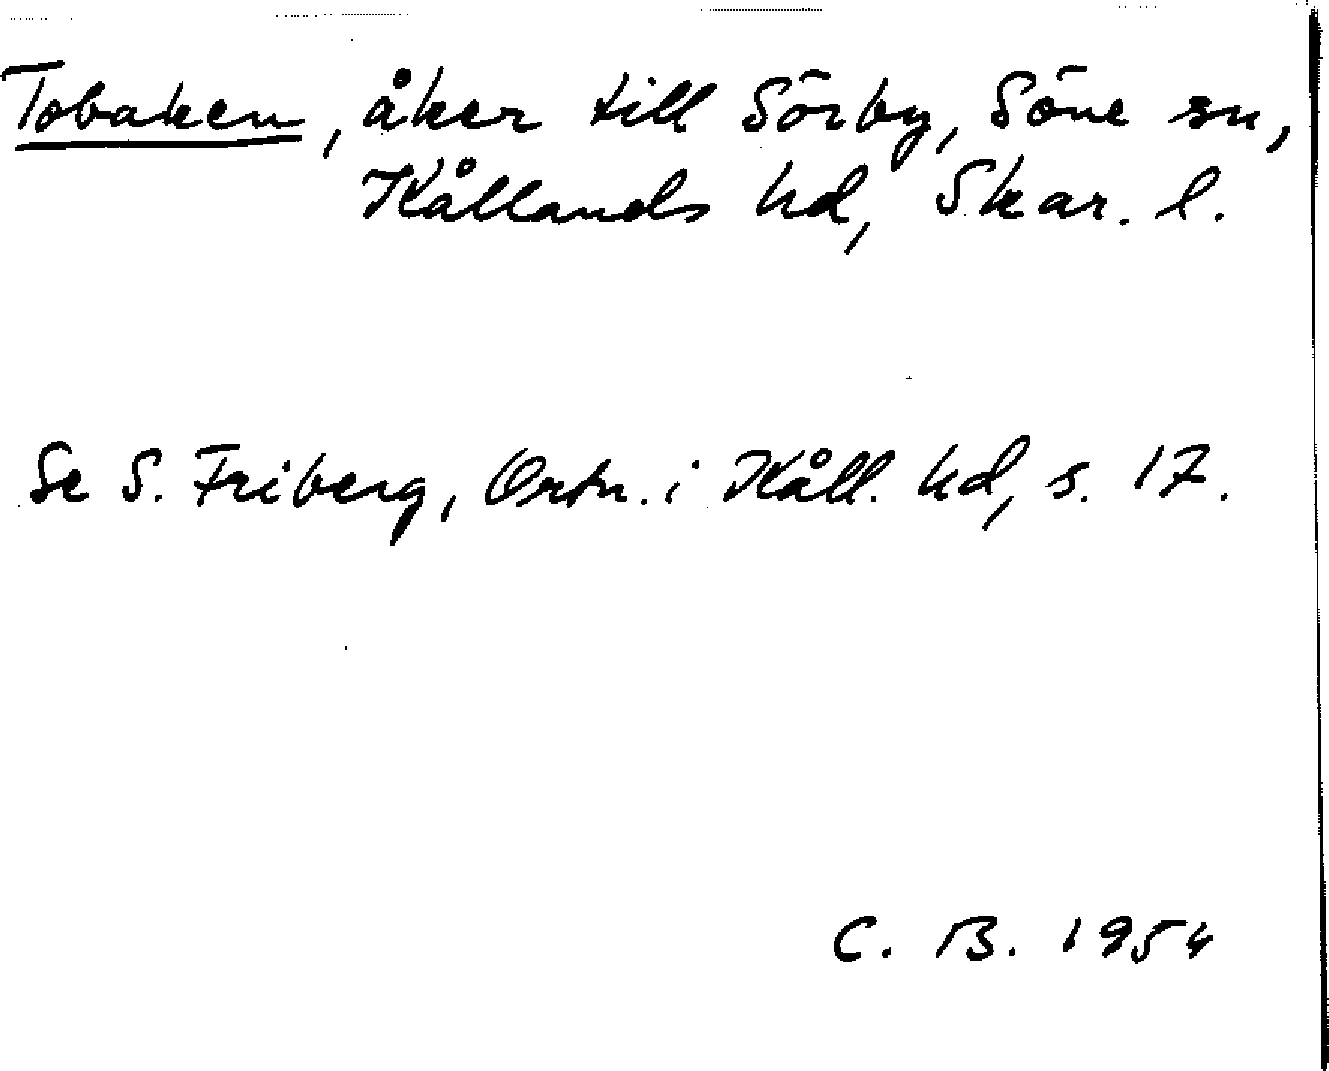 Tobaken, åker till Sörby, Söne sn,
Kållands hd, Skar. l.
Se S. Friberg, Ortn. i Kåll. hd, s. 17.
C. B. 1954